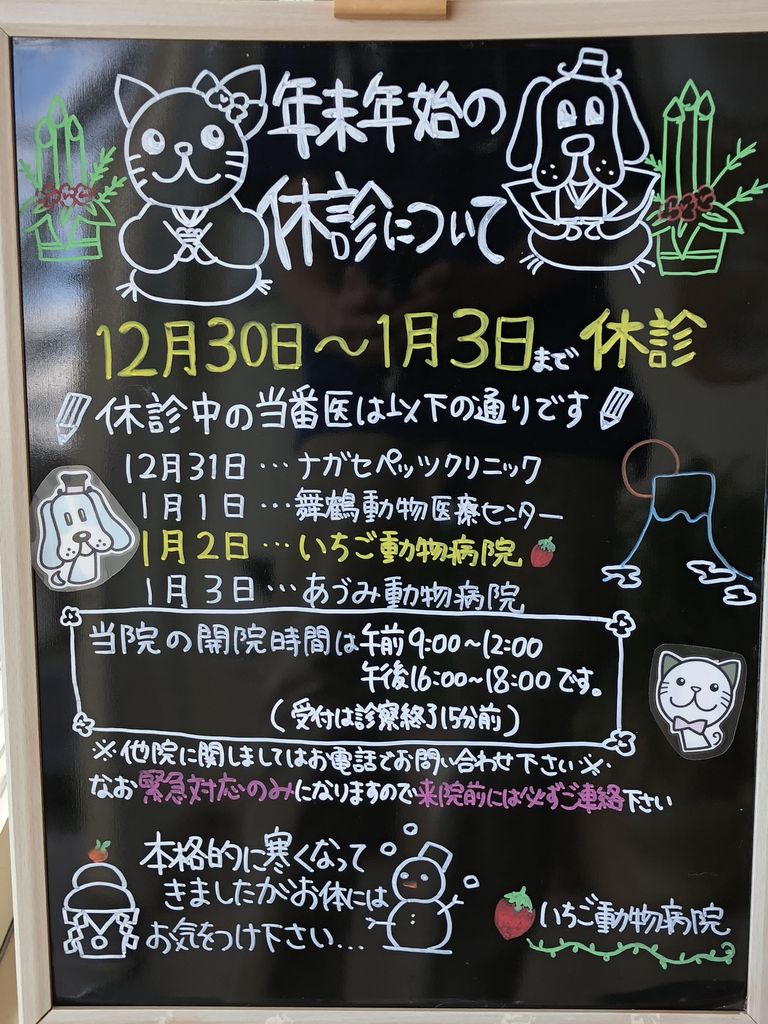 年末年始の
休診について
12月30日～1月3日まで 休診
休診中の当番医は以下の通りです
12月31日…ナガセペッツクリニック
1月1日…舞鶴動物医療センター
1月2日…いちご動物病院
1月3日…あづみ動物病院
当院の開院時間は午前9:00～12:00
午後16:00～18:00です。
(受付は診察終了15分前)
※他院に関しましてはお電話でお問い合わせ下さい※
なお緊急対応のみになりますので来院前には必ずご連絡下さい
本格的に寒くなって
きましたがお体には
お気をつけ下さい...
いちご動物病院